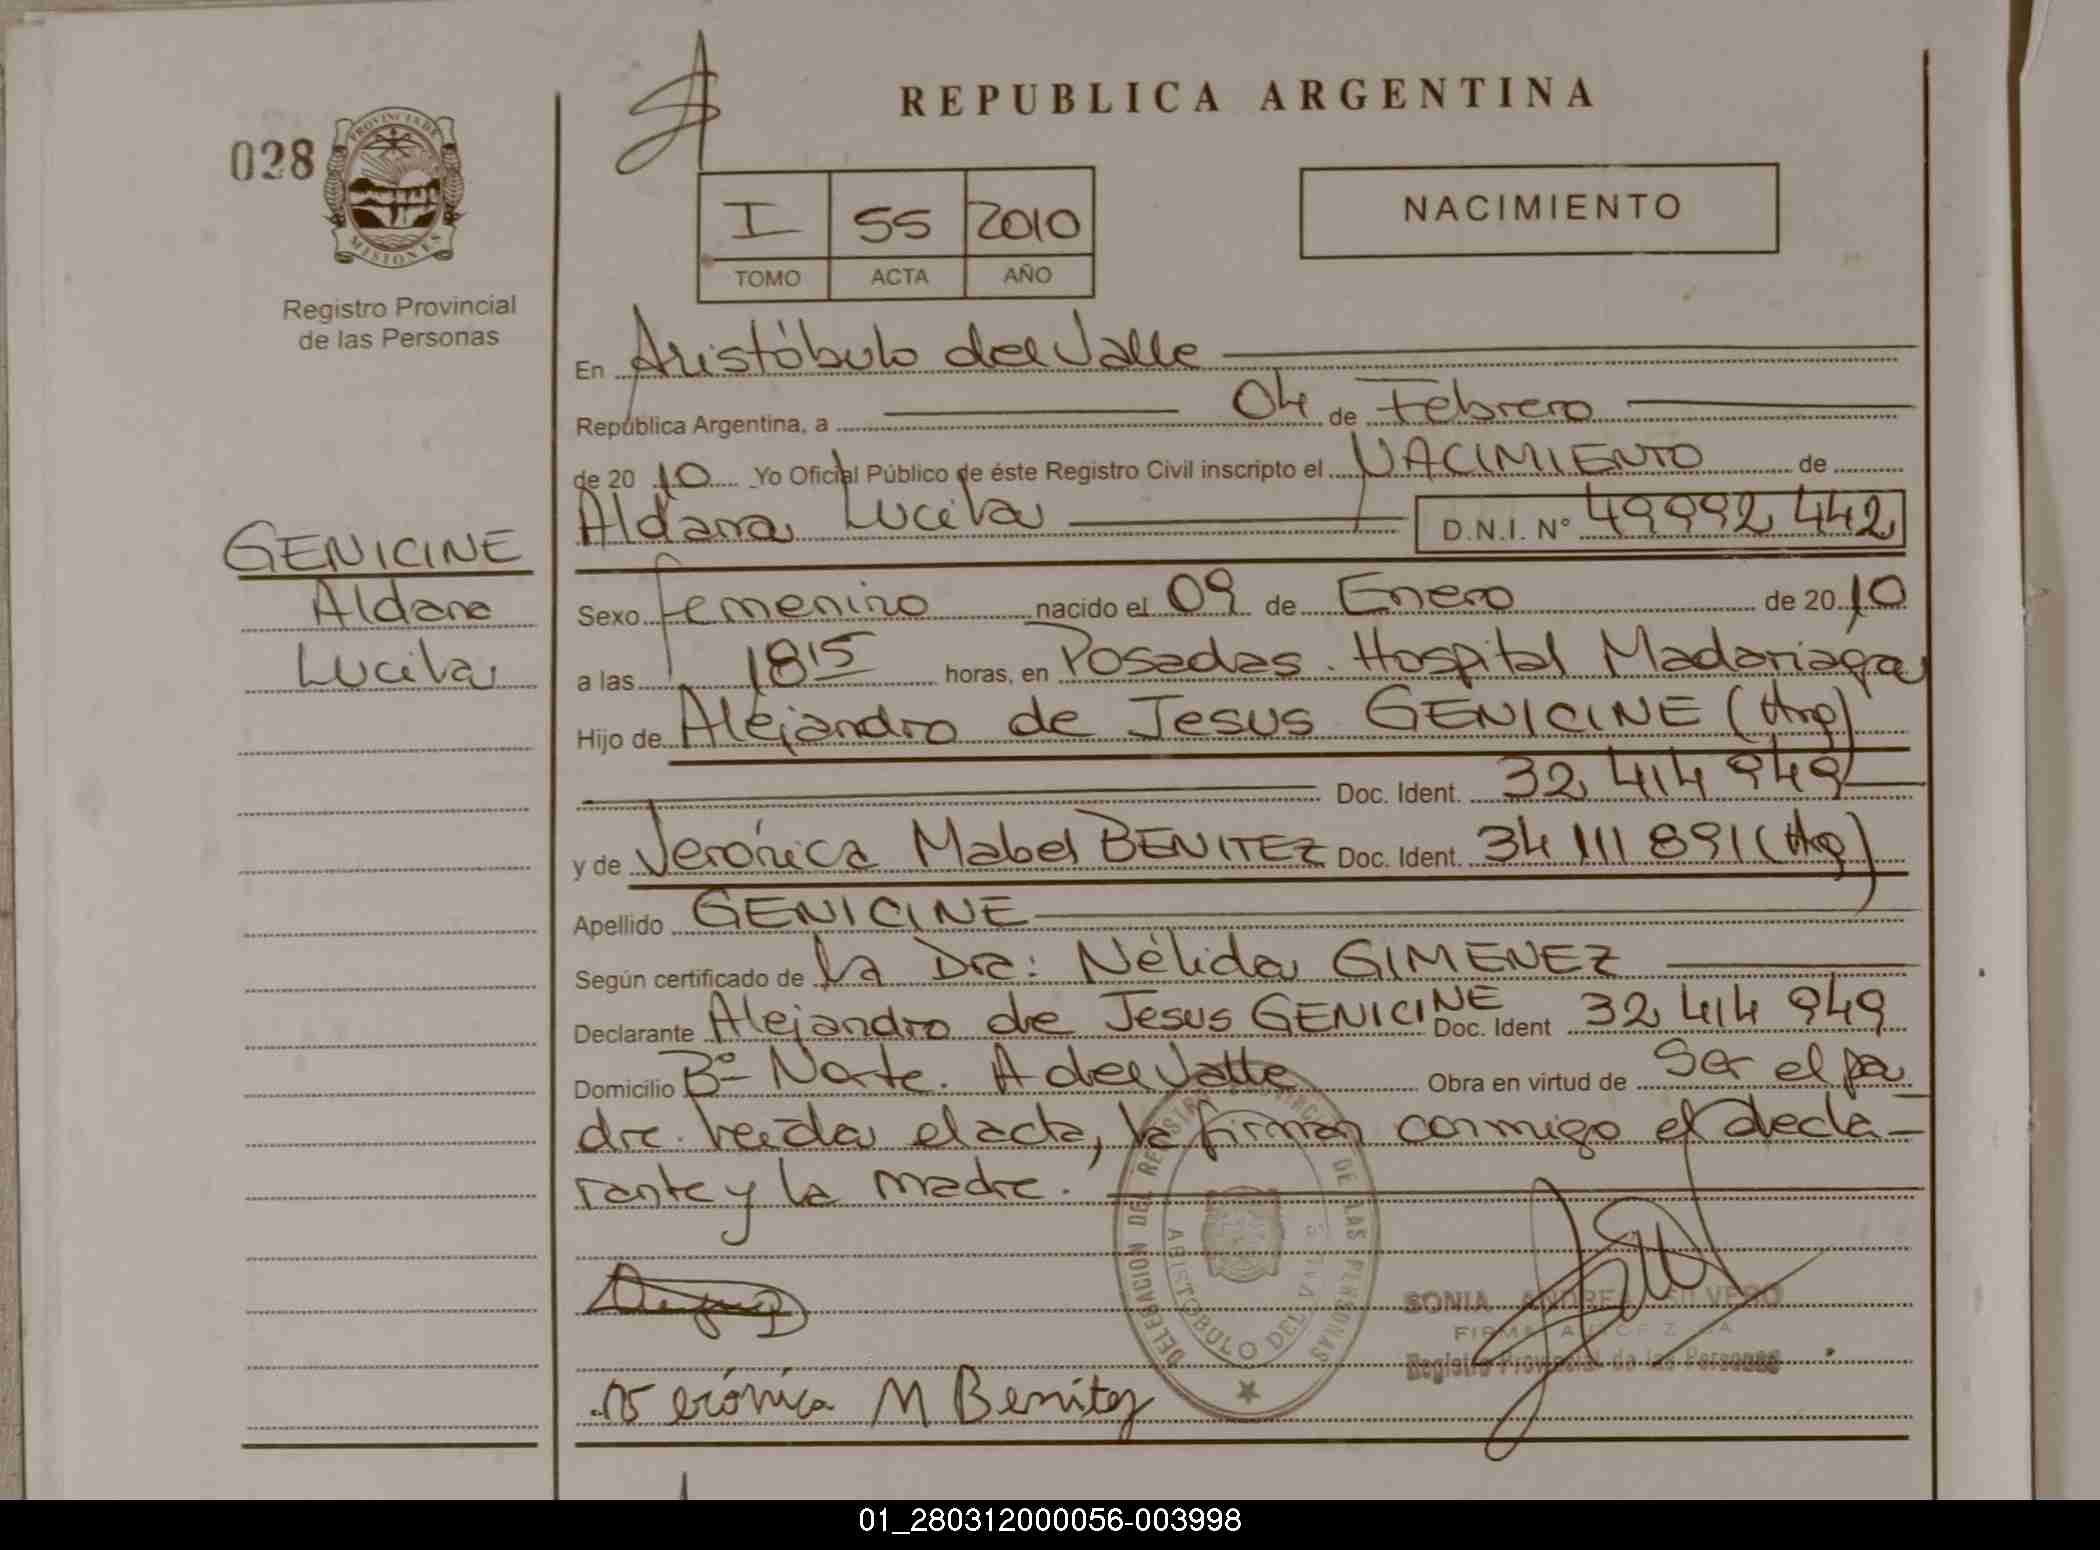 REPUBLICA ARGENTINA
028
PROVINCIA DE
MISIONES
Registro Provincial
de las Personas
I 55 2010
TOMO ACTA AÑO
NACIMIENTO
En Aristóbulo del Valle
República Argentina, a 04 de Febrero
de 20 10 Yo Oficial Público de éste Registro Civil inscripto el NACIMIENTO de
Aldana Lucila D.N.I. Nº 49992442
GENICINE
Aldana
Lucila
Sexo femenino nacido el 09 de Enero de 20 10
a las 18 15 horas, en Posadas. Hospital Madariaga
Hijo de Alejandro de Jesus GENICINE (Arg)
Doc. Ident. 32 414 949
y de Verónica Mabel BENITEZ Doc. Ident. 34 111 891 (Arg)
Apellido GENICINE
Según certificado de la Dra: Nélida GIMENEZ
Declarante Alejandro de Jesus GENICINE Doc. Ident 32 414 949
Domicilio Bº Norte. A del Valle Obra en virtud de Ser el pa
dre. Leida el acta, la firman conmigo el decla-
rante y la madre.
DELEGACION DEL REGISTRO PROVINCIAL DE LAS PERSONAS
ARISTOBULO DEL VALLE
SONIA ANDREA SILVERO
FIRMA AUTORIZADA
Registro Provincial de las Personas
Verónica M Benitez
01_280312000056-003998